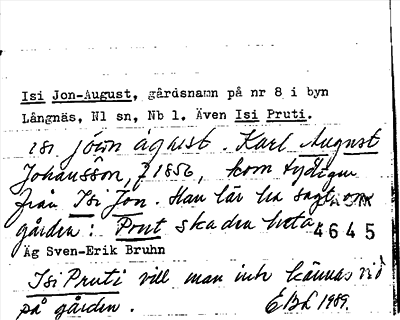 Isi Jon-August, gårdsnamn på nr 8 i byn
Långnäs, Nl sn, Nb l. Även Isi Pruti.
isi jôun àgust. Karl August
Johansson, f 1856, kom tydligen
från Isi Jon. Han lär ha sagt om
gården: Pont ska den heta.
4645
Äg Sven-Erik Bruhn
Isi Pruti vill man inte kännas vid
på gården. EBL 1989.